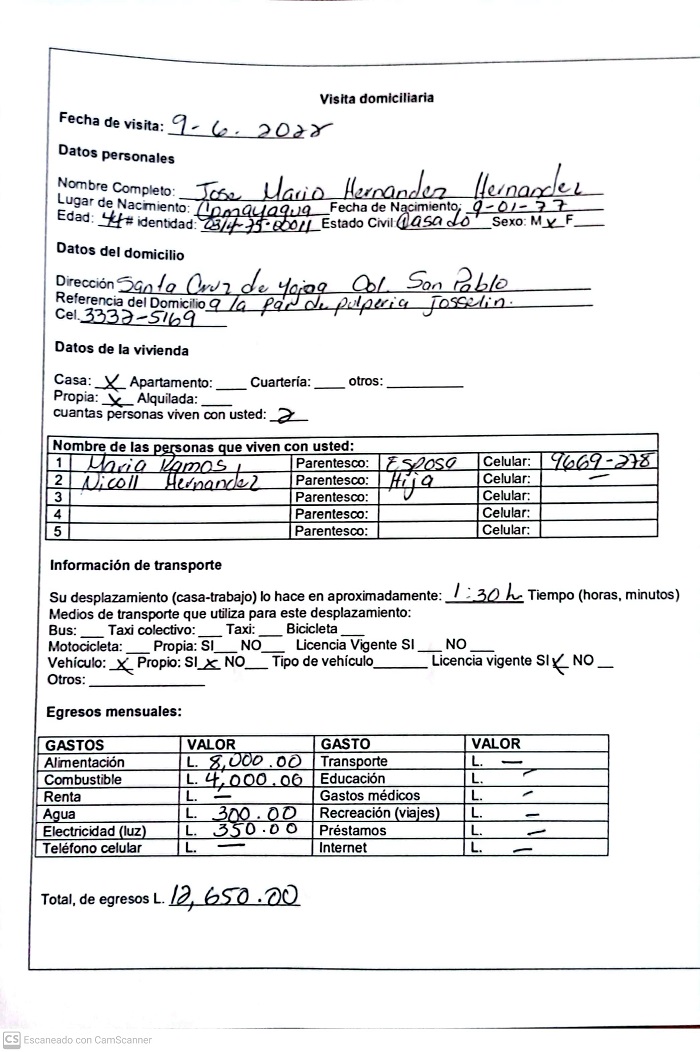 Visita domiciliaria
Fecha de visita: 9-6. 2022
Datos personales
Nombre Completo: Jose Mario Hernandez Hernandez
Lugar de Nacimiento: Comayagua Fecha de Nacimiento: 9-01-77
Edad: 44 # identidad: Estado Civil: Casado Sexo: M x F
Datos del domicilio
Dirección Santa Cruz de Yojoa Col. San Pablo
Referencia del Domicilio a la par de pulperia Josselin.
Cel. 3332-5169
Datos de la vivienda
Casa: X Apartamento: ____ Cuartería: ____ otros: ____
Propia: X Alquilada: ____
cuantas personas viven con usted: 2
Nombre de las personas que viven con usted:
1 Maria Ramos Parentesco: Esposa Celular: 9669-278
2 Nicoll Hernandez Parentesco: Hija Celular: —
3 Parentesco: Celular:
4 Parentesco: Celular:
5 Parentesco: Celular:
Información de transporte
Su desplazamiento (casa-trabajo) lo hace en aproximadamente: 1:30 h Tiempo (horas, minutos)
Medios de transporte que utiliza para este desplazamiento:
Bus: ___ Taxi colectivo: ___ Taxi: ___ Bicicleta ___
Motocicleta: ___ Propia: SI ___ NO ___ Licencia Vigente SI ___ NO ___
Vehículo: X Propio: SI X NO ___ Tipo de vehículo ______ Licencia vigente SI X NO __
Otros: ____
Egresos mensuales:
GASTOS VALOR GASTO VALOR
Alimentación L. 8,000.00 Transporte L. —
Combustible L. 4,000.00 Educación L. —
Renta L. — Gastos médicos L. —
Agua L. 300.00 Recreación (viajes) L. —
Electricidad (luz) L. 350.00 Préstamos L. —
Teléfono celular L. — Internet L. —
Total, de egresos L. 12,650.00
CS Escaneado con CamScanner